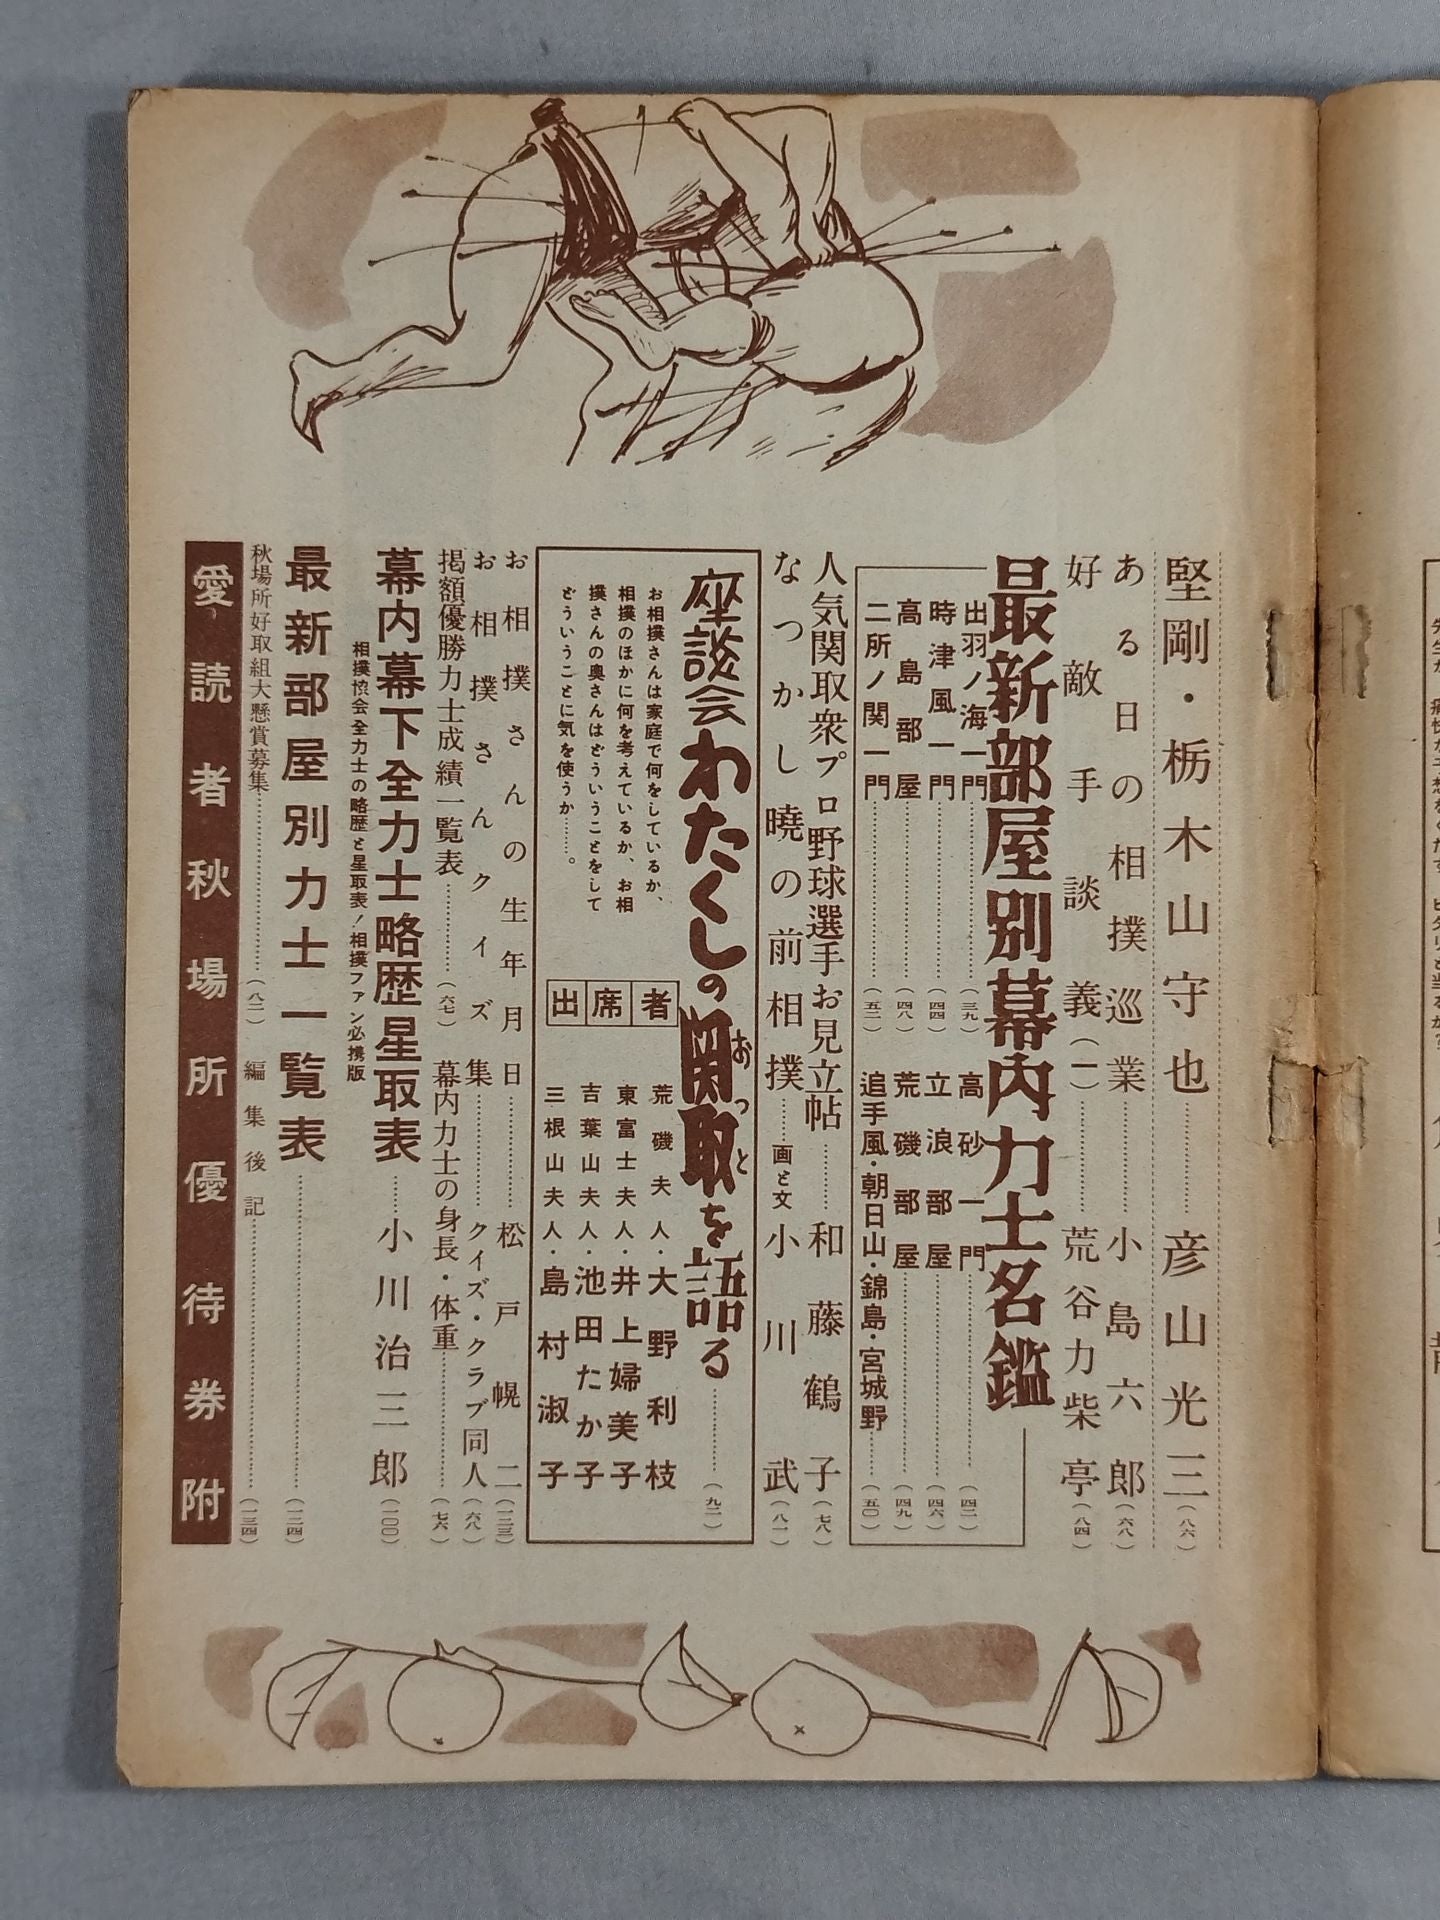 堅剛・栃木山守也……彦山光三(八六)
ある日の相撲巡業……小島六郎(六八)
好敵手談義(一)……荒谷力柴亭(八四)
最新部屋別幕内力士名鑑
出羽ノ海一門……(三九)
高砂一門……(四二)
時津風一門……(四四)
立浪部屋……(四六)
高島部屋……(四八)
荒磯部屋……(四九)
二所ノ関一門……(五二)
追手風・朝日山・錦島・宮城野……(五〇)
人気関取衆プロ野球選手お見立帖……和藤鶴子(七八)
なつかし暁の前相撲……画と文 小川武(八一)
座談会 わたくしの関取を語る……(九二)
おっと
お相撲さんは家庭で何をしているか、
相撲のほかに何を考えているか、お相
撲さんの奥さんはどういうことをして
どういうことに気を使うか……。
出席者
荒磯夫人・大野利枝
東富士夫人・井上婦美子
吉葉山夫人・池田たか子
三根山夫人・島村淑子
お相撲さんの生年月日……松戸幌二(一二三)
お相撲さんクイズ集……クイズ・クラブ同人(六八)
掲額優勝力士成績一覧表……(六七)
幕内力士の身長・体重……(七六)
幕内幕下全力士略歴星取表……小川治三郎(一〇〇)
相撲協会全力士の略歴と星取表!相撲ファン必携版
最新部屋別力士一覧表……(一二四)
秋場所好取組大懸賞募集……(八二)
編集後記……(一三四)
愛読者秋場所優待券附